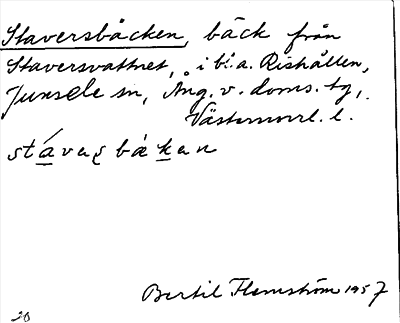 Staversbäcken, bäck från
Staversvattnet, i bl.a. Rishållen,
Junsele sn, Ång. v. doms. tg,
Västernorrl. l.
stávesbäken
Bertil Flemström 1957
20